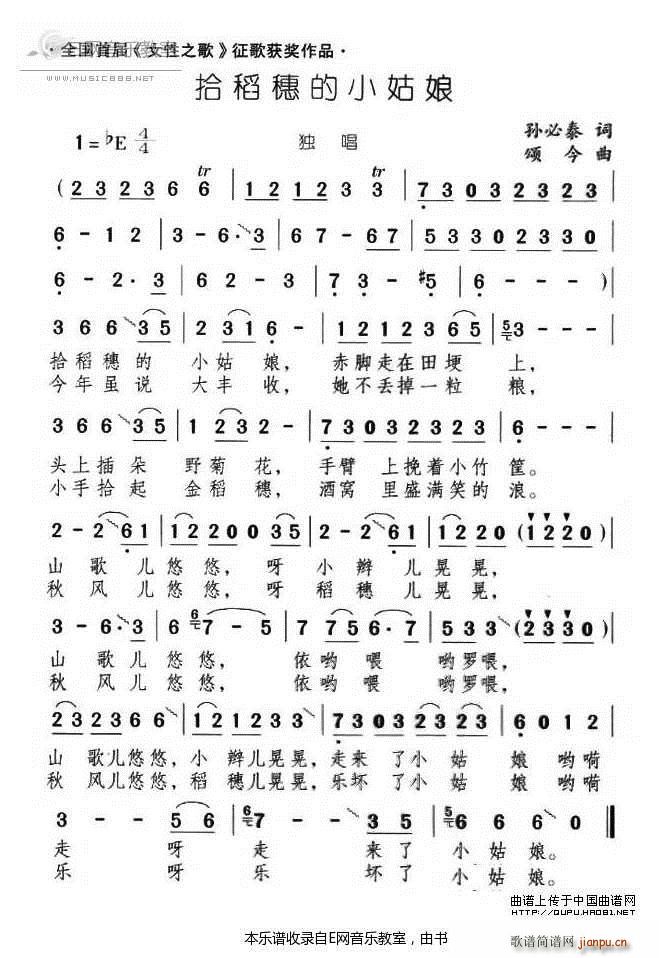 ·全国首届《女性之歌》征歌获奖作品·
WWW.MUSIC888.NET
拾稻穗的小姑娘
1=♭E 4/4
独唱
孙必泰 词
颂今 曲
(2 3 2 3 6 6 | 1 2 1 2 3 3 | 7 3 0 3 2 3 2 3
6 - 1 2 | 3 - 6· 3 | 6 7 - 6 7 | 5 3 3 0 2 3 3 0
6 - 2· 3 | 6 - 1 2 | 7 3 - #5 | 6 - - )|
3 6 6 3 5 | 2 3 1 6 - | 1 2 1 2 3 6 5 | 3 - -
拾稻穗的 小姑 娘，赤脚走在田埂 上，
今年虽说 大丰 收，她不丢掉一粒 粮，
3 6 6 3 5 | 1 2 3 2 - | 7 3 0 3 2 3 2 3 | 6 - -
头上插朵 野菊 花，手臂 上挽着小竹 筐。
小手拾起 金稻 穗，酒窝 里盛满笑的 浪。
2 - 2 6 1 | 1 2 2 0 0 3 5 | 2 - 2 6 1 | 1 2 2 0 (1 2 2 0
山歌儿悠悠，呀 小 辫 儿晃晃，
秋风儿悠悠，呀 稻 穗 儿晃晃，
3 - 6· 3 | 6 7 - 5 | 7 7 5 6· 7 | 5 3 3 (2 3 3 0
山 歌儿悠 悠，依哟 喂 哟罗喂，
秋 风儿悠 悠，依哟 喂 哟罗喂，
2 3 2 3 6 6 | 1 2 1 2 3 3 | 7 3 0 3 2 3 2 3 | 6 0 1 2
山 歌儿悠悠，小 辫儿晃晃，走来 了小 姑 娘 哟嗬
秋 风儿悠悠，稻 穗儿晃晃，乐坏 了小 姑 娘 哟嗬
3 - - 5 6 | 7 - - 3 5 | 6 6 6 0
走 呀 走 来了 小姑娘。
乐 呀 乐 坏了 小姑娘。
曲谱上传于中国曲谱网
HTTP://QUPU.HAO81.NET
本乐谱收录自E网音乐教室，由书
歌谱简谱网 jianpu.cn